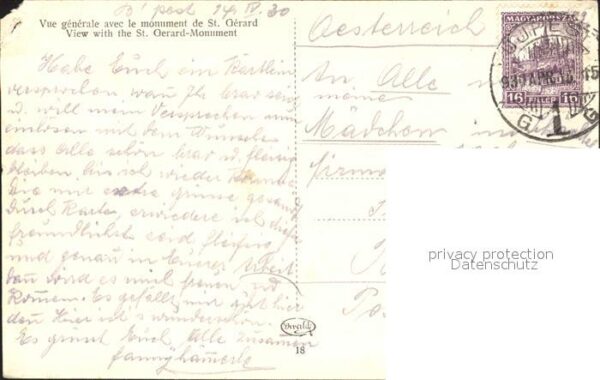 B'pest 14.IV.30
Vue générale avec le monument de St. Gérard
View with the St. Gerard-Monument
Habe Euch ein Kartlein
versprochen wan Ihr brav seid
u. will mein Versprechen nun
einlösen mit dem Wunsche
dass Alle schön brav u. fleissig
bleiben bis ich wieder komme
Sie mir Grüsse gesandt
durch Karte, erwiedere ich diese
freundlichst seid fleissig
und genau in Eurer Arbeit
dan wird es mich freuen
kommen. Es gefällt mir gut hier
den hier ist wunderschön.
Es grüsst Euch Alle zusamen
Fanny
Oesterreich
An Alle
meine
Mädchen
Firma
MAGYARORSZÁG
16 FILLÉR 16
BUDAPEST
930 APR 15
1
privacy protection
Datenschutz
Divald
18